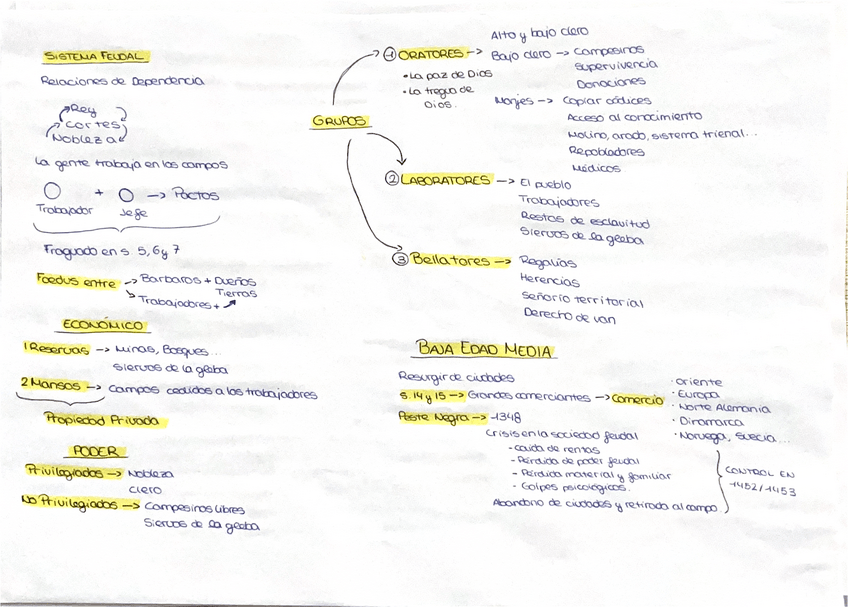 SISTEMA FEUDAL
Relaciones de Dependencia
Rey
Cortes
Nobleza
La gente trabaja en los campos
O + O → Pactos
Trabajador Jefe
Fraguado en s. 5, 6 y 7
Foedus entre → Barbaros + Dueños
Tierras
→ Trabajadores +
ECONÓMICO
1 Reservas → Minas, Bosques...
Siervos de la gleba
2 Mansos → Campos cedidos a los trabajadores
Propiedad Privada
PODER
Privilegiados → Nobleza
Clero
No Privilegiados → Campesinos libres
Siervos de la gleba
GRUPOS
Alto y bajo clero
1 ORATORES → Bajo clero → Campesinos
Supervivencia
Donaciones
• La paz de Dios
• La tregua de
Dios.
Monjes → Copiar códices
Acceso al conocimiento
Molino, arado, sistema trienal...
Repobladores
Médicos
2 LABORATORES → El pueblo
Trabajadores
Restos de esclavitud
Siervos de la gleba
3 Bellatores → Regalías
Herencias
Señorío territorial
Derecho de van
BAJA EDAD MEDIA
Resurgir de ciudades
s. 14 y 15 → Grandes comerciantes → Comercio
· Oriente
· Europa
· Norte Alemania
· Dinamarca
· Noruega, Suecia...
Peste Negra → 1348
Crisis en la sociedad feudal
- Caída de rentas
- Pérdida de poder feudal
- Pérdida material y familiar
- Golpes psicológicos.
Abandono de ciudades y retirada al campo.
CONTROL EN
1452/1453